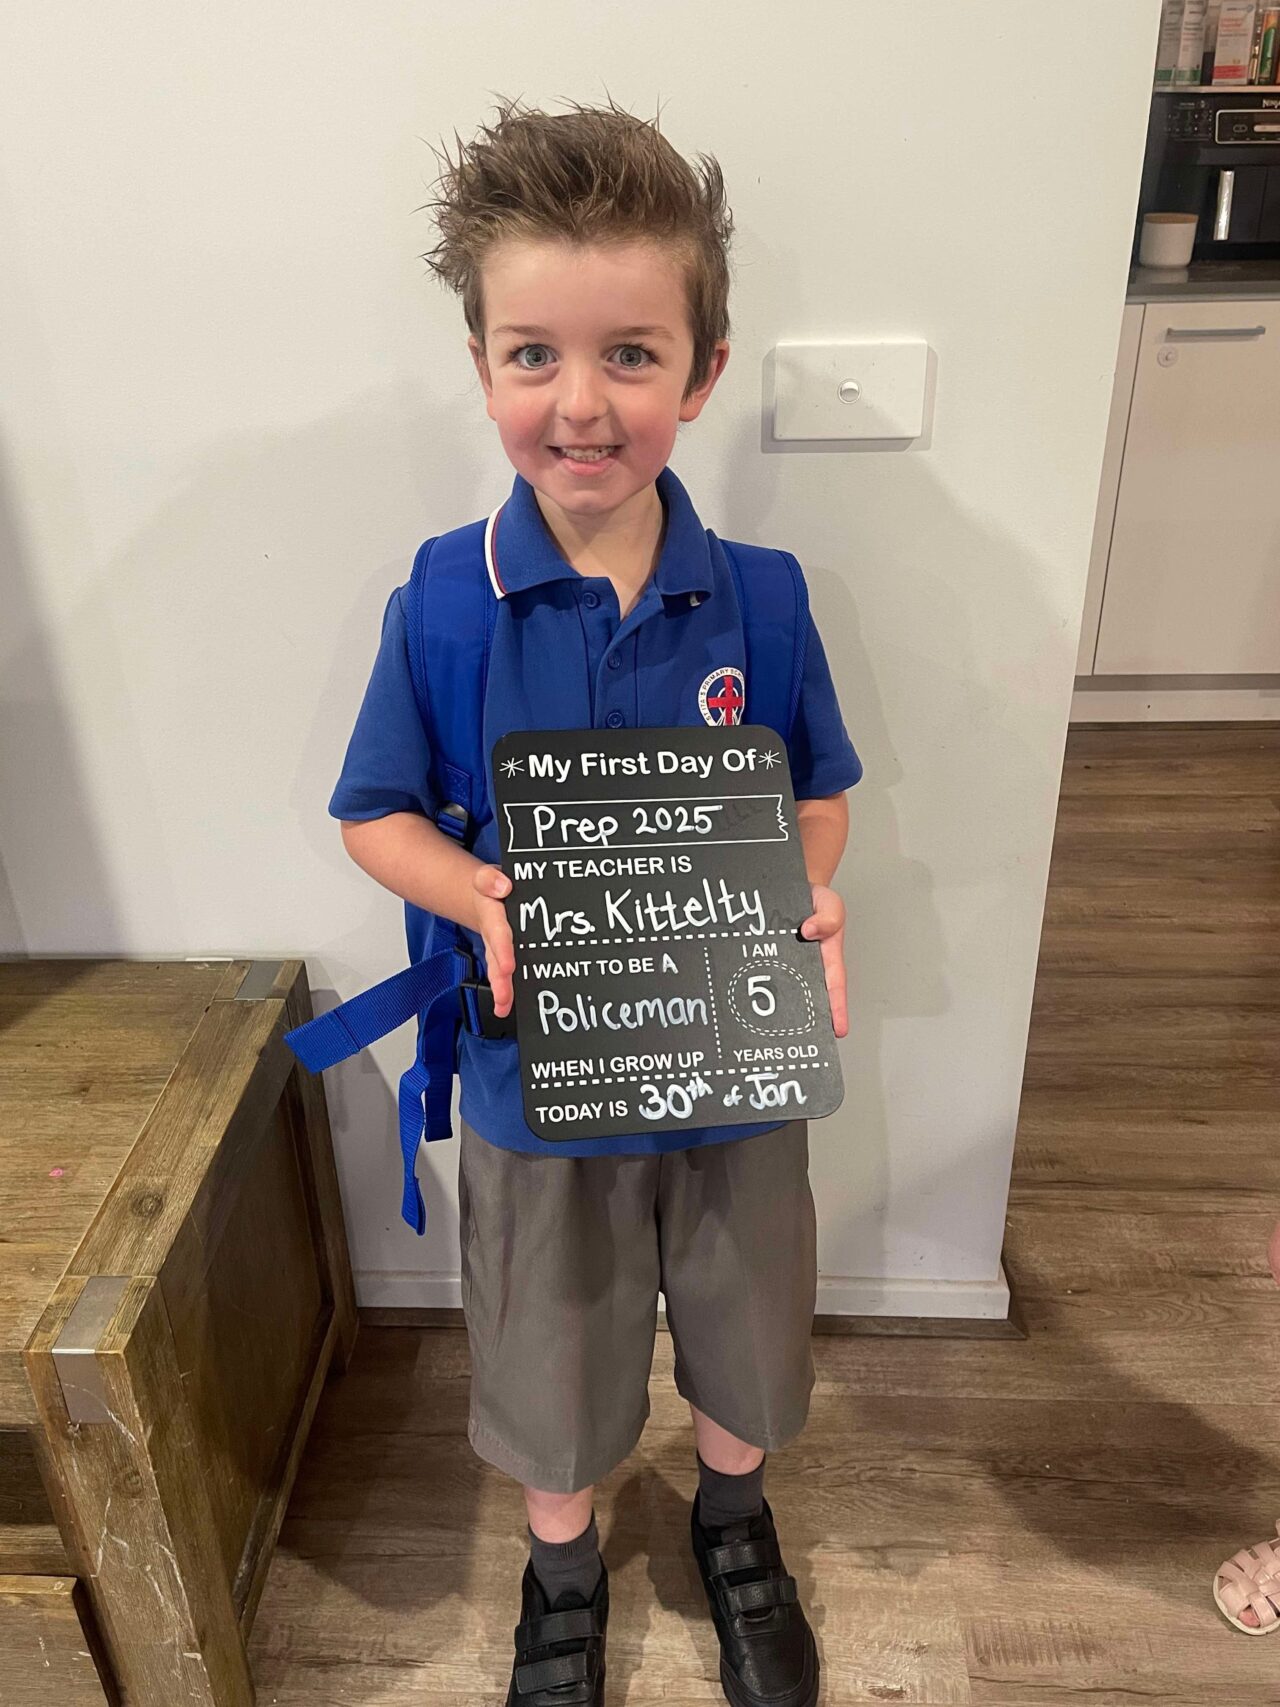 Ninja
ST ITA'S PRIMARY SCH
*My First Day Of*
Prep 2025
MY TEACHER IS
Mrs. Kittelty
I WANT TO BE A
Policeman
WHEN I GROW UP
I AM
5
YEARS OLD
TODAY IS 30th of Jan